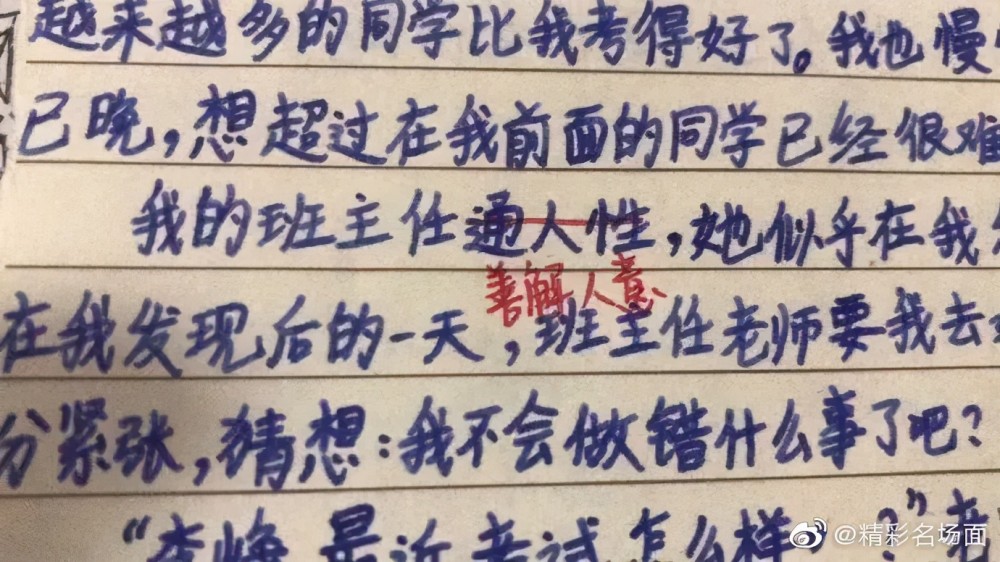 越来越多的同学比我考得好了。我也慢
已晚，想超过在我前面的同学已经很难
我的班主任通人性，她似乎在我
善解人意
在我发现后的一天，班主任老师要我去
分紧张，猜想：我不会做错什么事了吧？
最近考试怎么样？”老
@精彩名场面